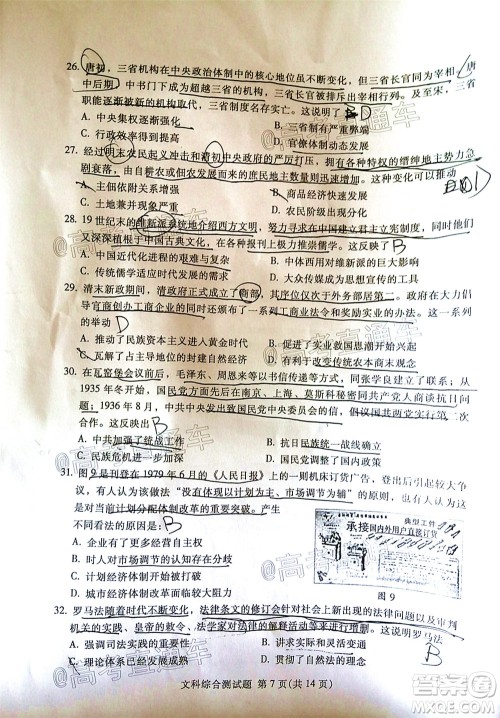 26. 唐初，三省机构在中央政治体制中的核心地位虽不断变化，但三省长官同为宰相，唐
中后期，中书门下成为超越三省的机构，三省长官被排斥出宰相行列。及至宋，三省
职能逐渐被新的机构取代，三省制度名存实亡。这说明了 B D
A. 中枢体制逐渐变化 B. 三省有严重弊端
C. 行政效率的提高 D. 官僚体制动态发展
27. 经过明末农民起义冲击和清初中央政府的严厉打压，拥有各种特权的缙绅地主势力急
剧衰落，由自耕农或佃农发展而来的庶民地主数量则迅速增长。这种变化可以推动
A. 主佃依附关系发展 B. 商品经济快速发展
C. 土地兼并现象严重 D. 农民阶级成分出现
28. 19 世纪末的维新派系统地介绍西方文明，主张在中国建立君主立宪制度，同时他们
又深深植根于中国古典文化，在各种报刊上极力推崇儒学。这反映了 B
A. 中国近代化进程的艰难与复杂 B. 中体西用的发展需要
C. 传统儒学适应时代发展的需求 D. 大众传媒成为思想进步的工具
29. 清末新政期间，清政府正式成立了商部，其序位仅次于外务部居第二。政府在大力倡
导官商创办工商企业的同时，还制订了一系列的工商业法规和奖励实业的办法。这
的举动 D
A. 推动了民族资本主义进入黄金时代 B. 促进了清政府统治开始加强
C. 瓦解了占主导地位的自然经济 D. 有利于改变传统农本商末观念
30. 在瓦窑堡会议前后，毛泽东、周恩来等以谈判、致信的方式，同张学良建立了联系；
1935 年冬开始，国民党在南京、上海、莫斯科秘密同共产党人商谈抗日
题；1936 年 8 月，中共中央发出致国民党中央委员会的信，倡议国共两党实行第二次
合作。这反映了 B
A. 中共加强了统战工作 B. 抗日民族统一战线确立
C. 民族危机不断加深 D. 国民党政策发生变化
31. 图 9 是刊登在 1979 年 6 月的《人民日报》上的某机床厂的订货广告。当时引起不少争
议，有人认为该做法“没有体现以计划为主、市场调节为辅”的原则，也有人认为这
是对当前计划分配体制的突破。
不同看法的原因是： B
A. 企业有了更多经营自主权
B. 对市场调节的认知存在分歧
C. 计划经济体制开始被打破
D. 城市经济体制改革面临较大阻力
典型工件
承接国内外用户直接订货
图 9
32. 罗马法随着时代不断变化，法律条文的修订会针对社会上新出现的法律问题以及司法
机关的实践、皇帝的敕令、法学家对法律的解释活动等进行增制。这说明罗马法
A. 强调司法实践的重要性 B. 讲求实际和灵活变通
C. 理论体系已经成熟 D. 贯彻自由民主精神
文科综合测试题 第 7 页(共 14 页)
@高考直通车